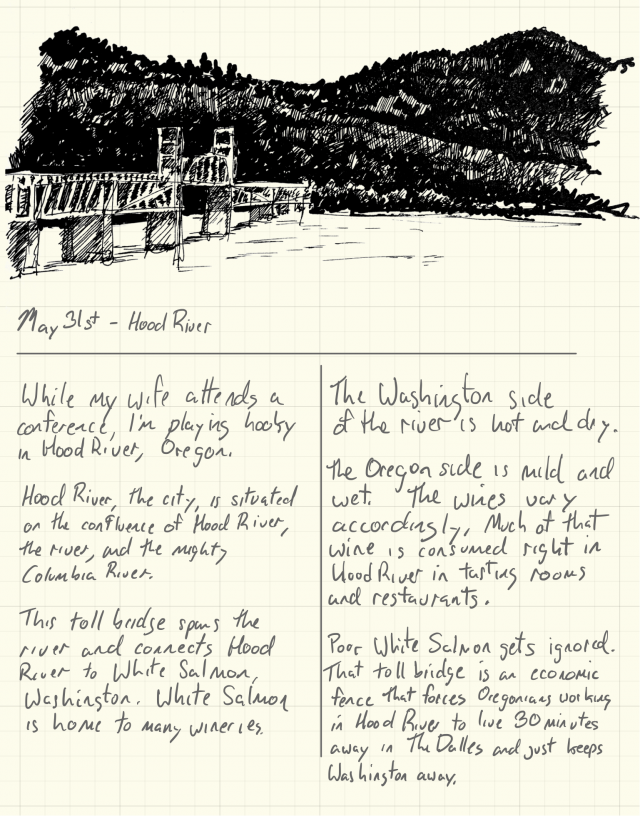 May 31st - Hood River
While my wife attends a
conference, I'm playing hooky
in Hood River, Oregon.
Hood River, the city, is situated
on the confluence of Hood River,
the river, and the mighty
Columbia River.
This toll bridge spans the
river and connects Hood
River to White Salmon,
Washington. White Salmon
is home to many wineries.
The Washington side
of the river is hot and dry.
The Oregon side is mild and
wet. The wines vary
accordingly, Much of that
wine is consumed right in
Hood River in tasting rooms
and restaurants.
Poor White Salmon gets ignored.
That toll bridge is an economic
fence that forces Oregonians working
in Hood River to live 30 minutes
away in The Dalles and just keeps
Washington away.